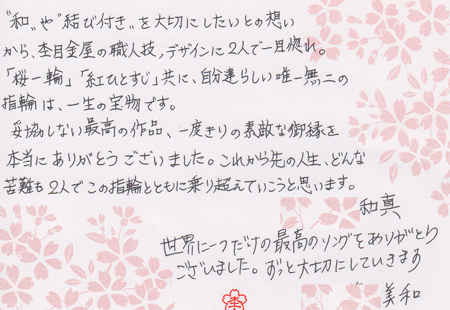 "和"や"結び付き"を大切にしたいとの想い
から、杢目金屋の職人技、デザインに2人で一目惚れ。
「桜一輪」「紅ひとすじ」共に、自分達らしい唯一無二の
指輪は、一生の宝物です。
妥協しない最高の作品、一度きりの素敵な御縁を
本当にありがとうございました。これから先の人生、どんな
苦難も2人でこの指輪とともに乗り超えていこうと思います。
和真
世界に一つだけの最高のリングをありがとう
ございました。ずっと大切にしていきます
美和
杢